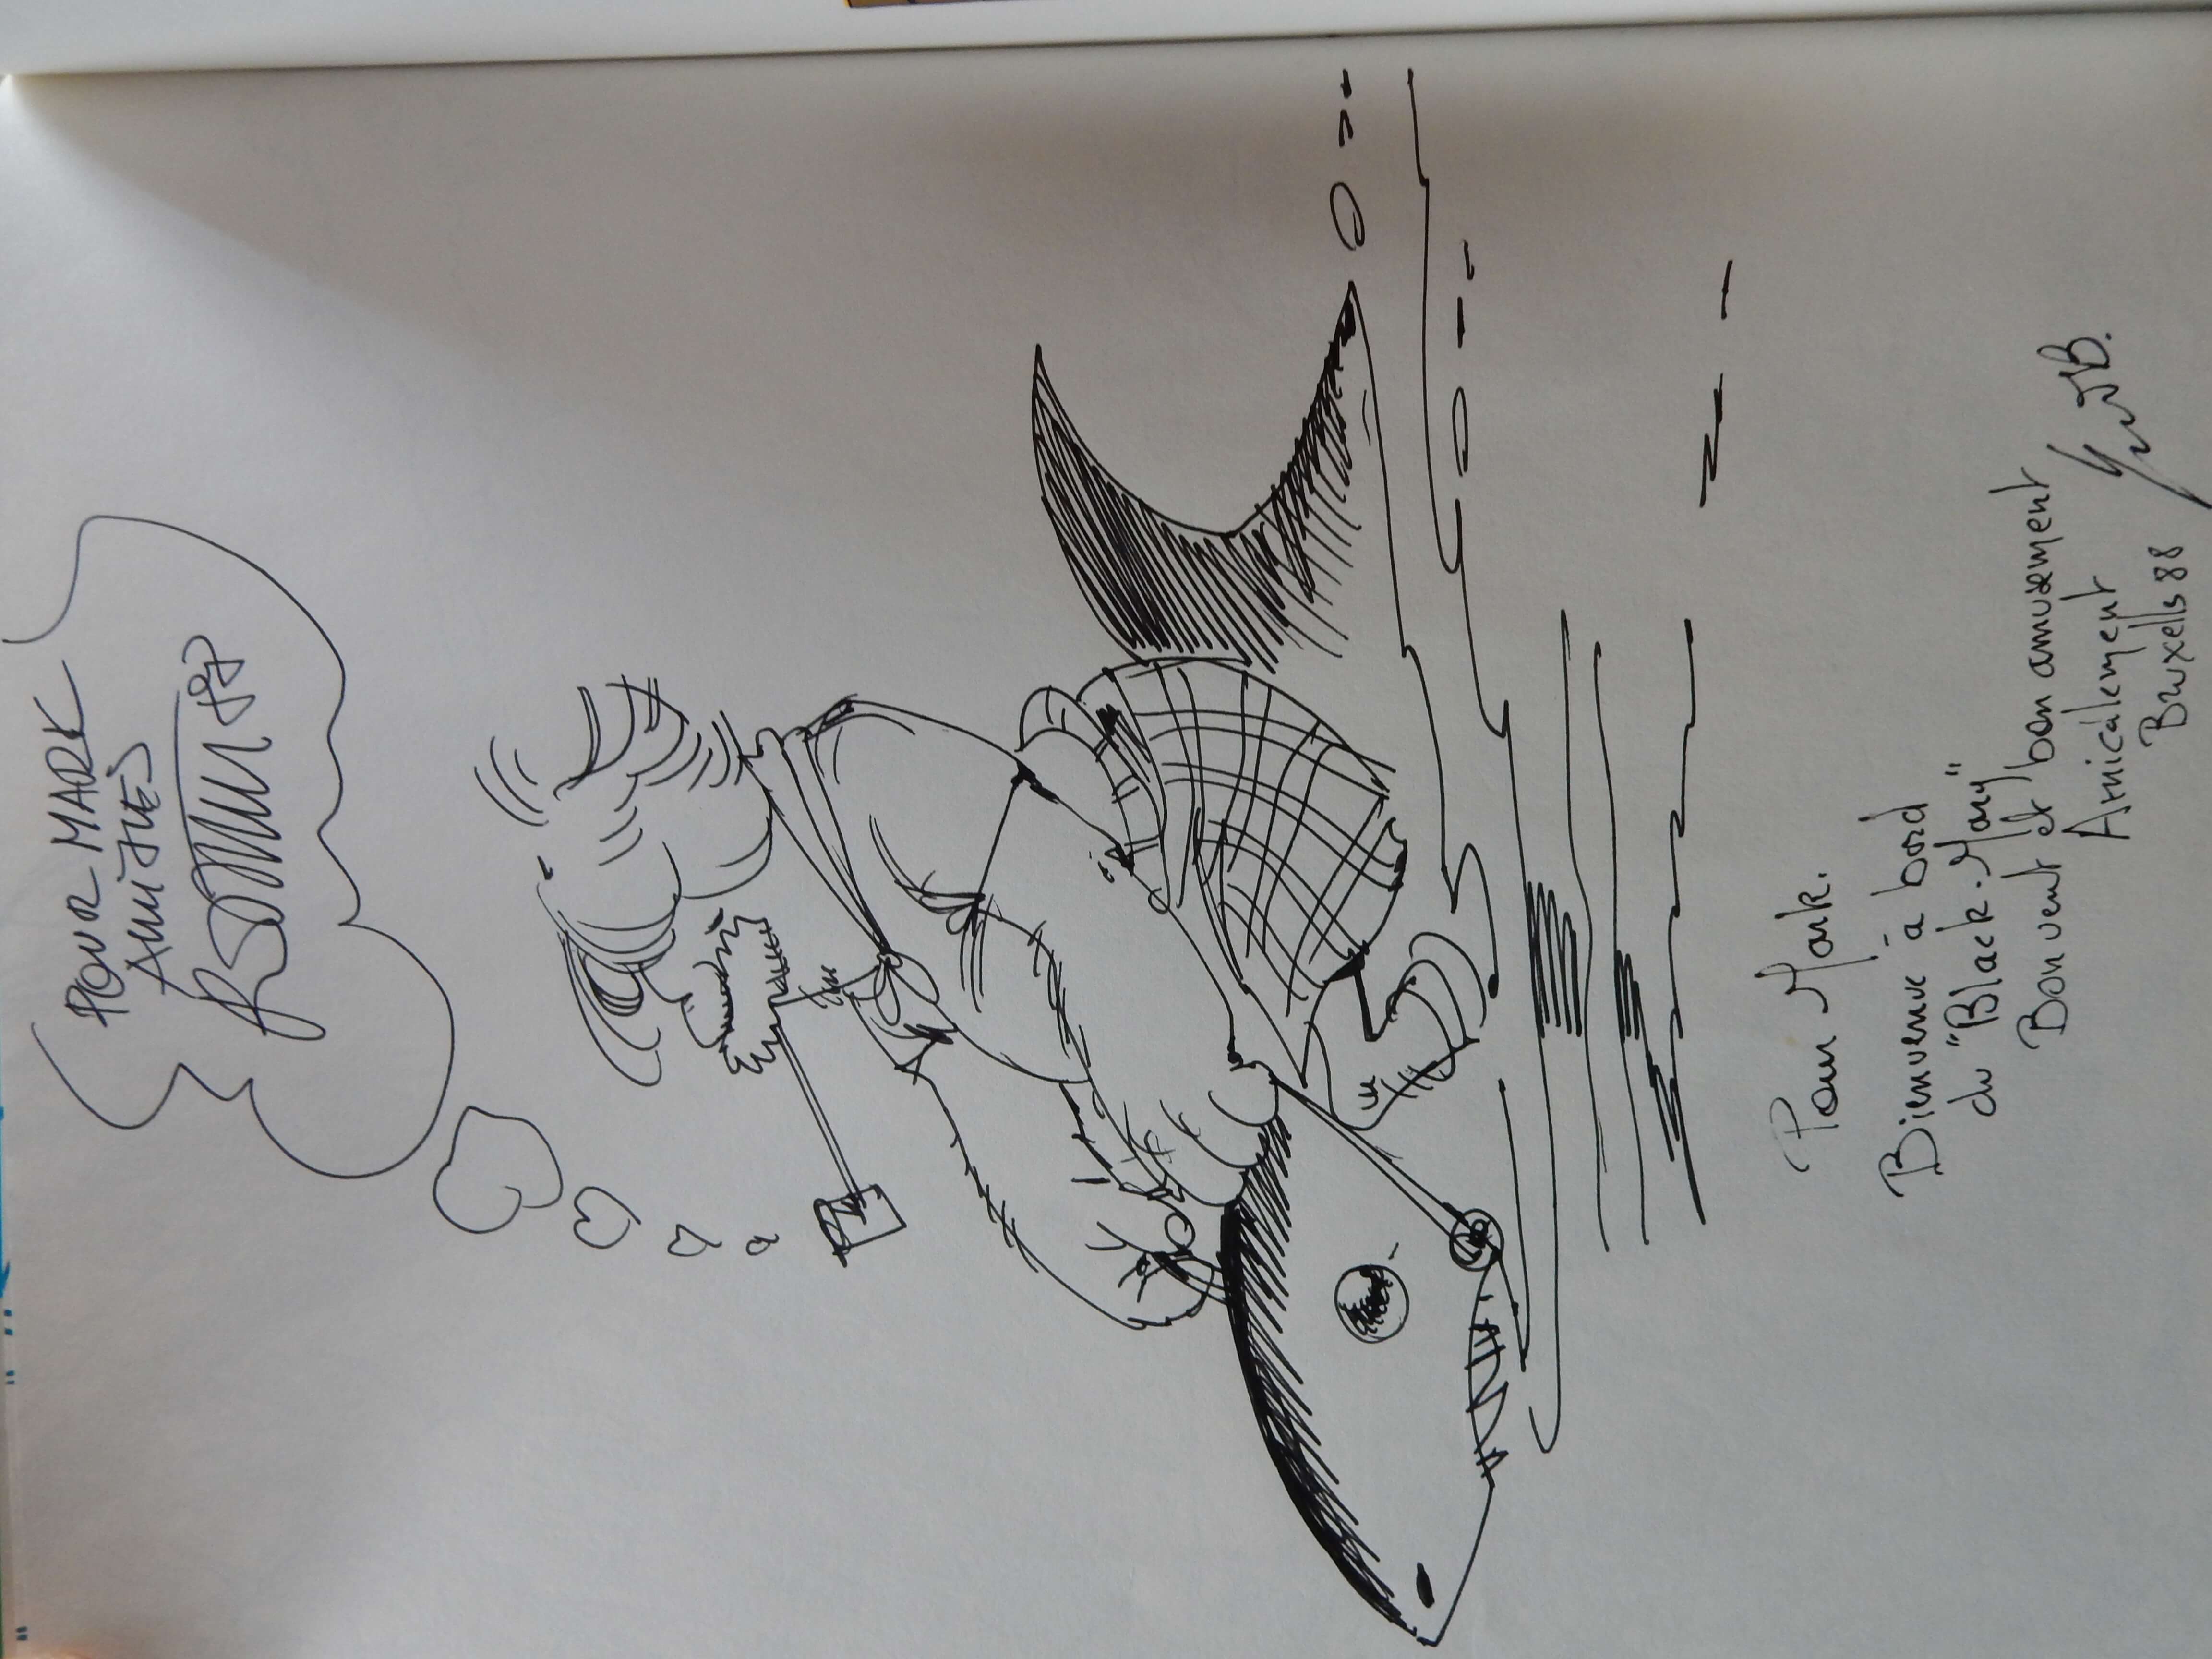 POUR MARK
AMITIES
88
Pour Mark.
Bienvenue à bord
du "Black-Mary"
Bon vent et bon amusement
Amicalement
Bruxelles 88